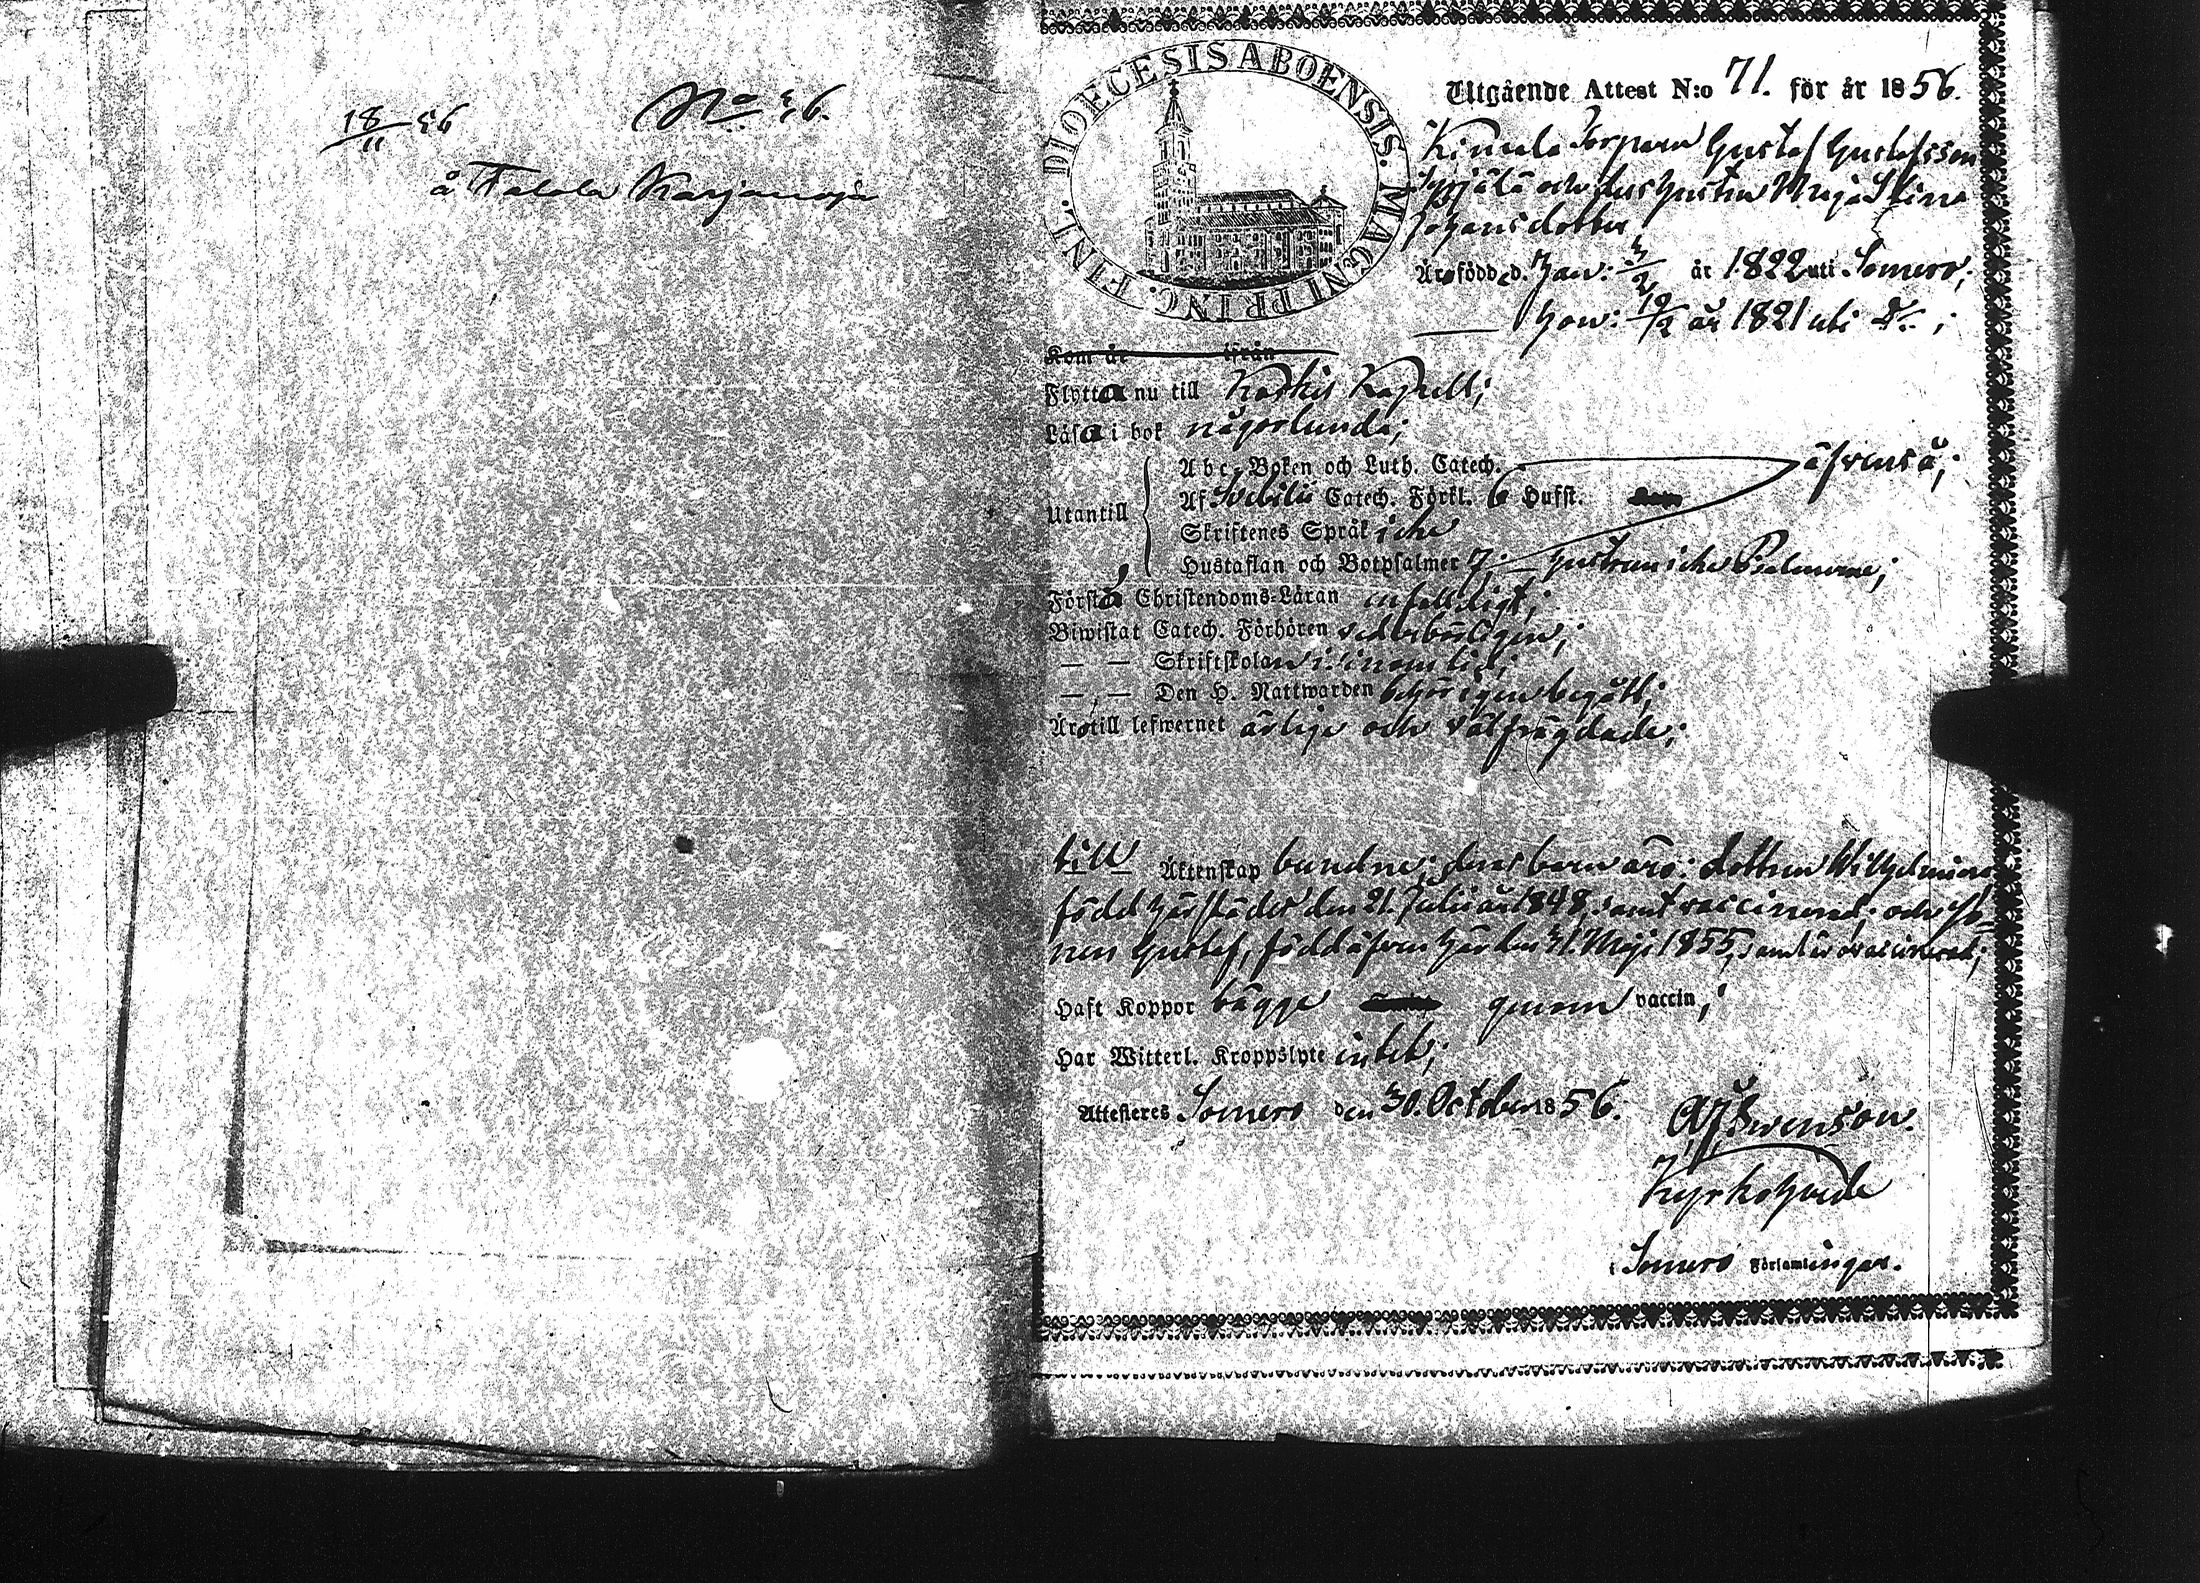 18/11 56
No 36.
å Talola Karjanoja
DIOECESIS ABOENSIS. MAGNI PRINC. FINL.
Utgående Attest N:o 71. för år 1856.
Torparen Gustaf Gustafsson
och dess hustru Maja Stina
Johansdotter
Äro födde d. han: 3/2 år 1822 uti Somero;
hon: 19/2 år 1821 uti Do;
Kom år ifrån
Flytta nu till Koskis Kapell;
Läsa i bok någorlunda;
Utantill
Abc-Boken och Luth. Catech. äfvenså;
Af Svebilii Catech. Förkl. 6 Hufst.
Skriftenes Språk icke
Hustaflan och Botpsalmer 7; hustrun icke Psalmerne;
Förstå Christendoms-Läran enfaldigt;
Biwistat Catech. Förhören vederbörligen;
— — Skriftskolan
— — Den H. Nattwarden behörigen begått;
Äro till lefwernet ärlige och välfrägdade;
till Äktenskap bundne; dess barn äro: dottren Wilhelmina
född härstädes den 21. Julii år 1848, samt vaccinerad; och So-
nen Gustaf, född äfven här den 31. Maji 1855, samt är ovaccinerad;
Haft Koppor bägge genom vaccin;
Har Witterl. Kroppslyte intet;
Attesteres Somero den 30. October 1856.
Swenson.
Kyrkoherde
i Somero Församlingar.